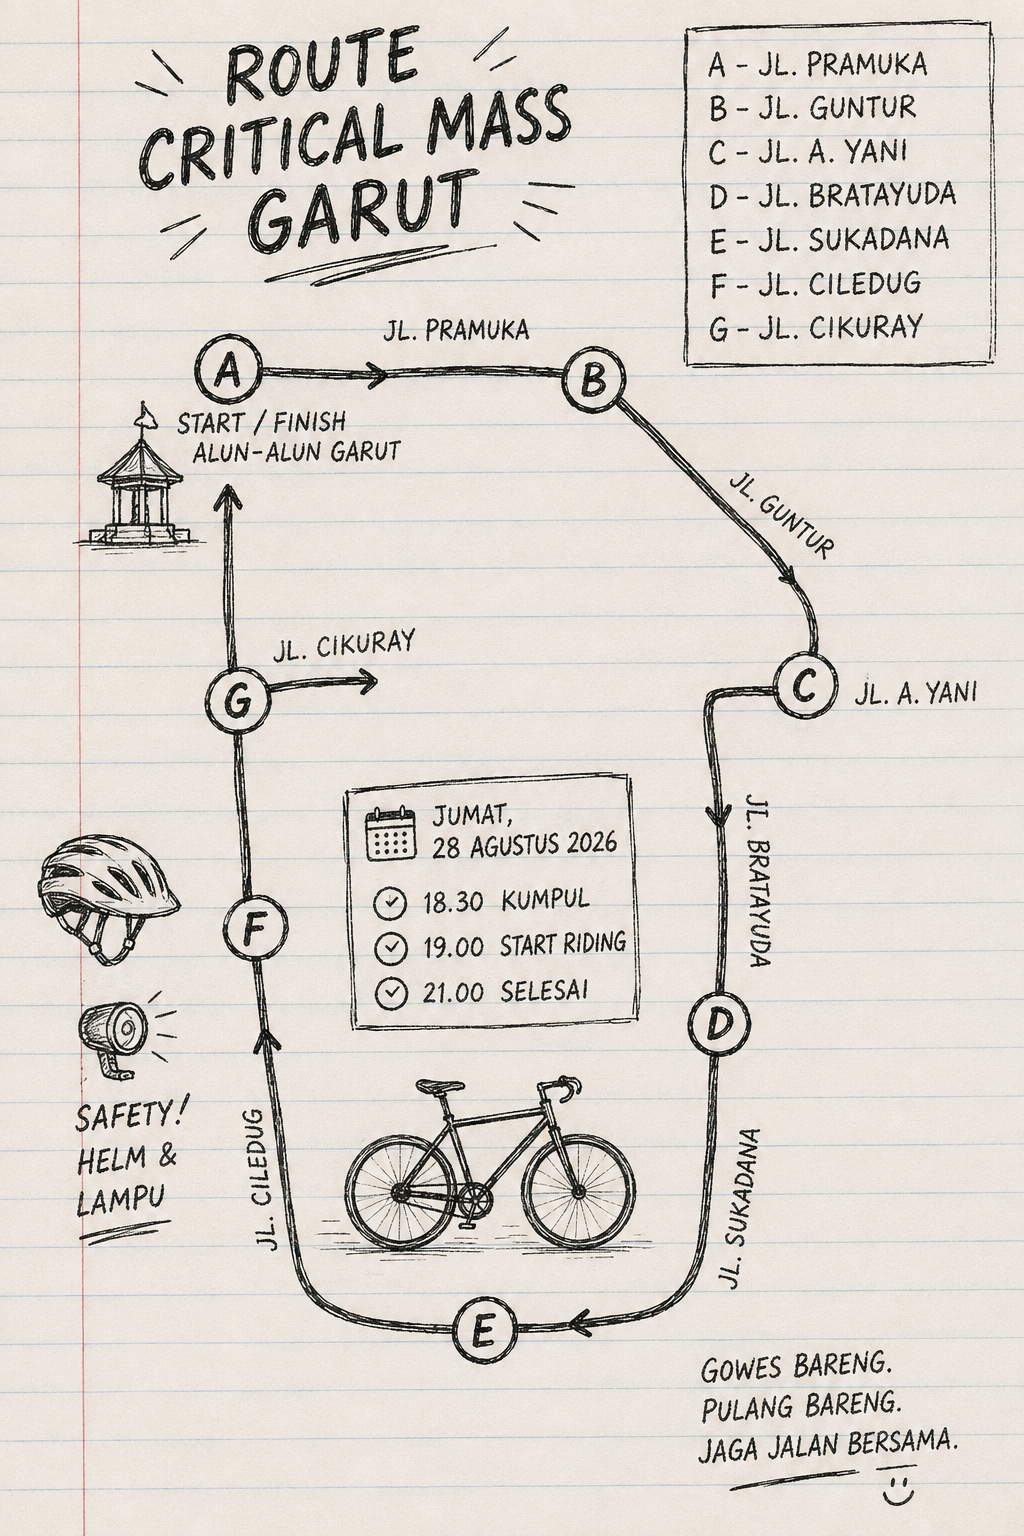 ROUTE
CRITICAL MASS
GARUT
A - JL. PRAMUKA
B - JL. GUNTUR
C - JL. A. YANI
D - JL. BRATAYUDA
E - JL. SUKADANA
F - JL. CILEDUG
G - JL. CIKURAY
JL. PRAMUKA
A
B
START / FINISH
ALUN-ALUN GARUT
JL. GUNTUR
JL. CIKURAY
G
C
JL. A. YANI
JUMAT,
28 AGUSTUS 2026
18.30 KUMPUL
19.00 START RIDING
21.00 SELESAI
JL. BRATAYUDA
F
D
SAFETY!
HELM &
LAMPU
JL. CILEDUG
JL. SUKADANA
E
GOWES BARENG.
PULANG BARENG.
JAGA JALAN BERSAMA.